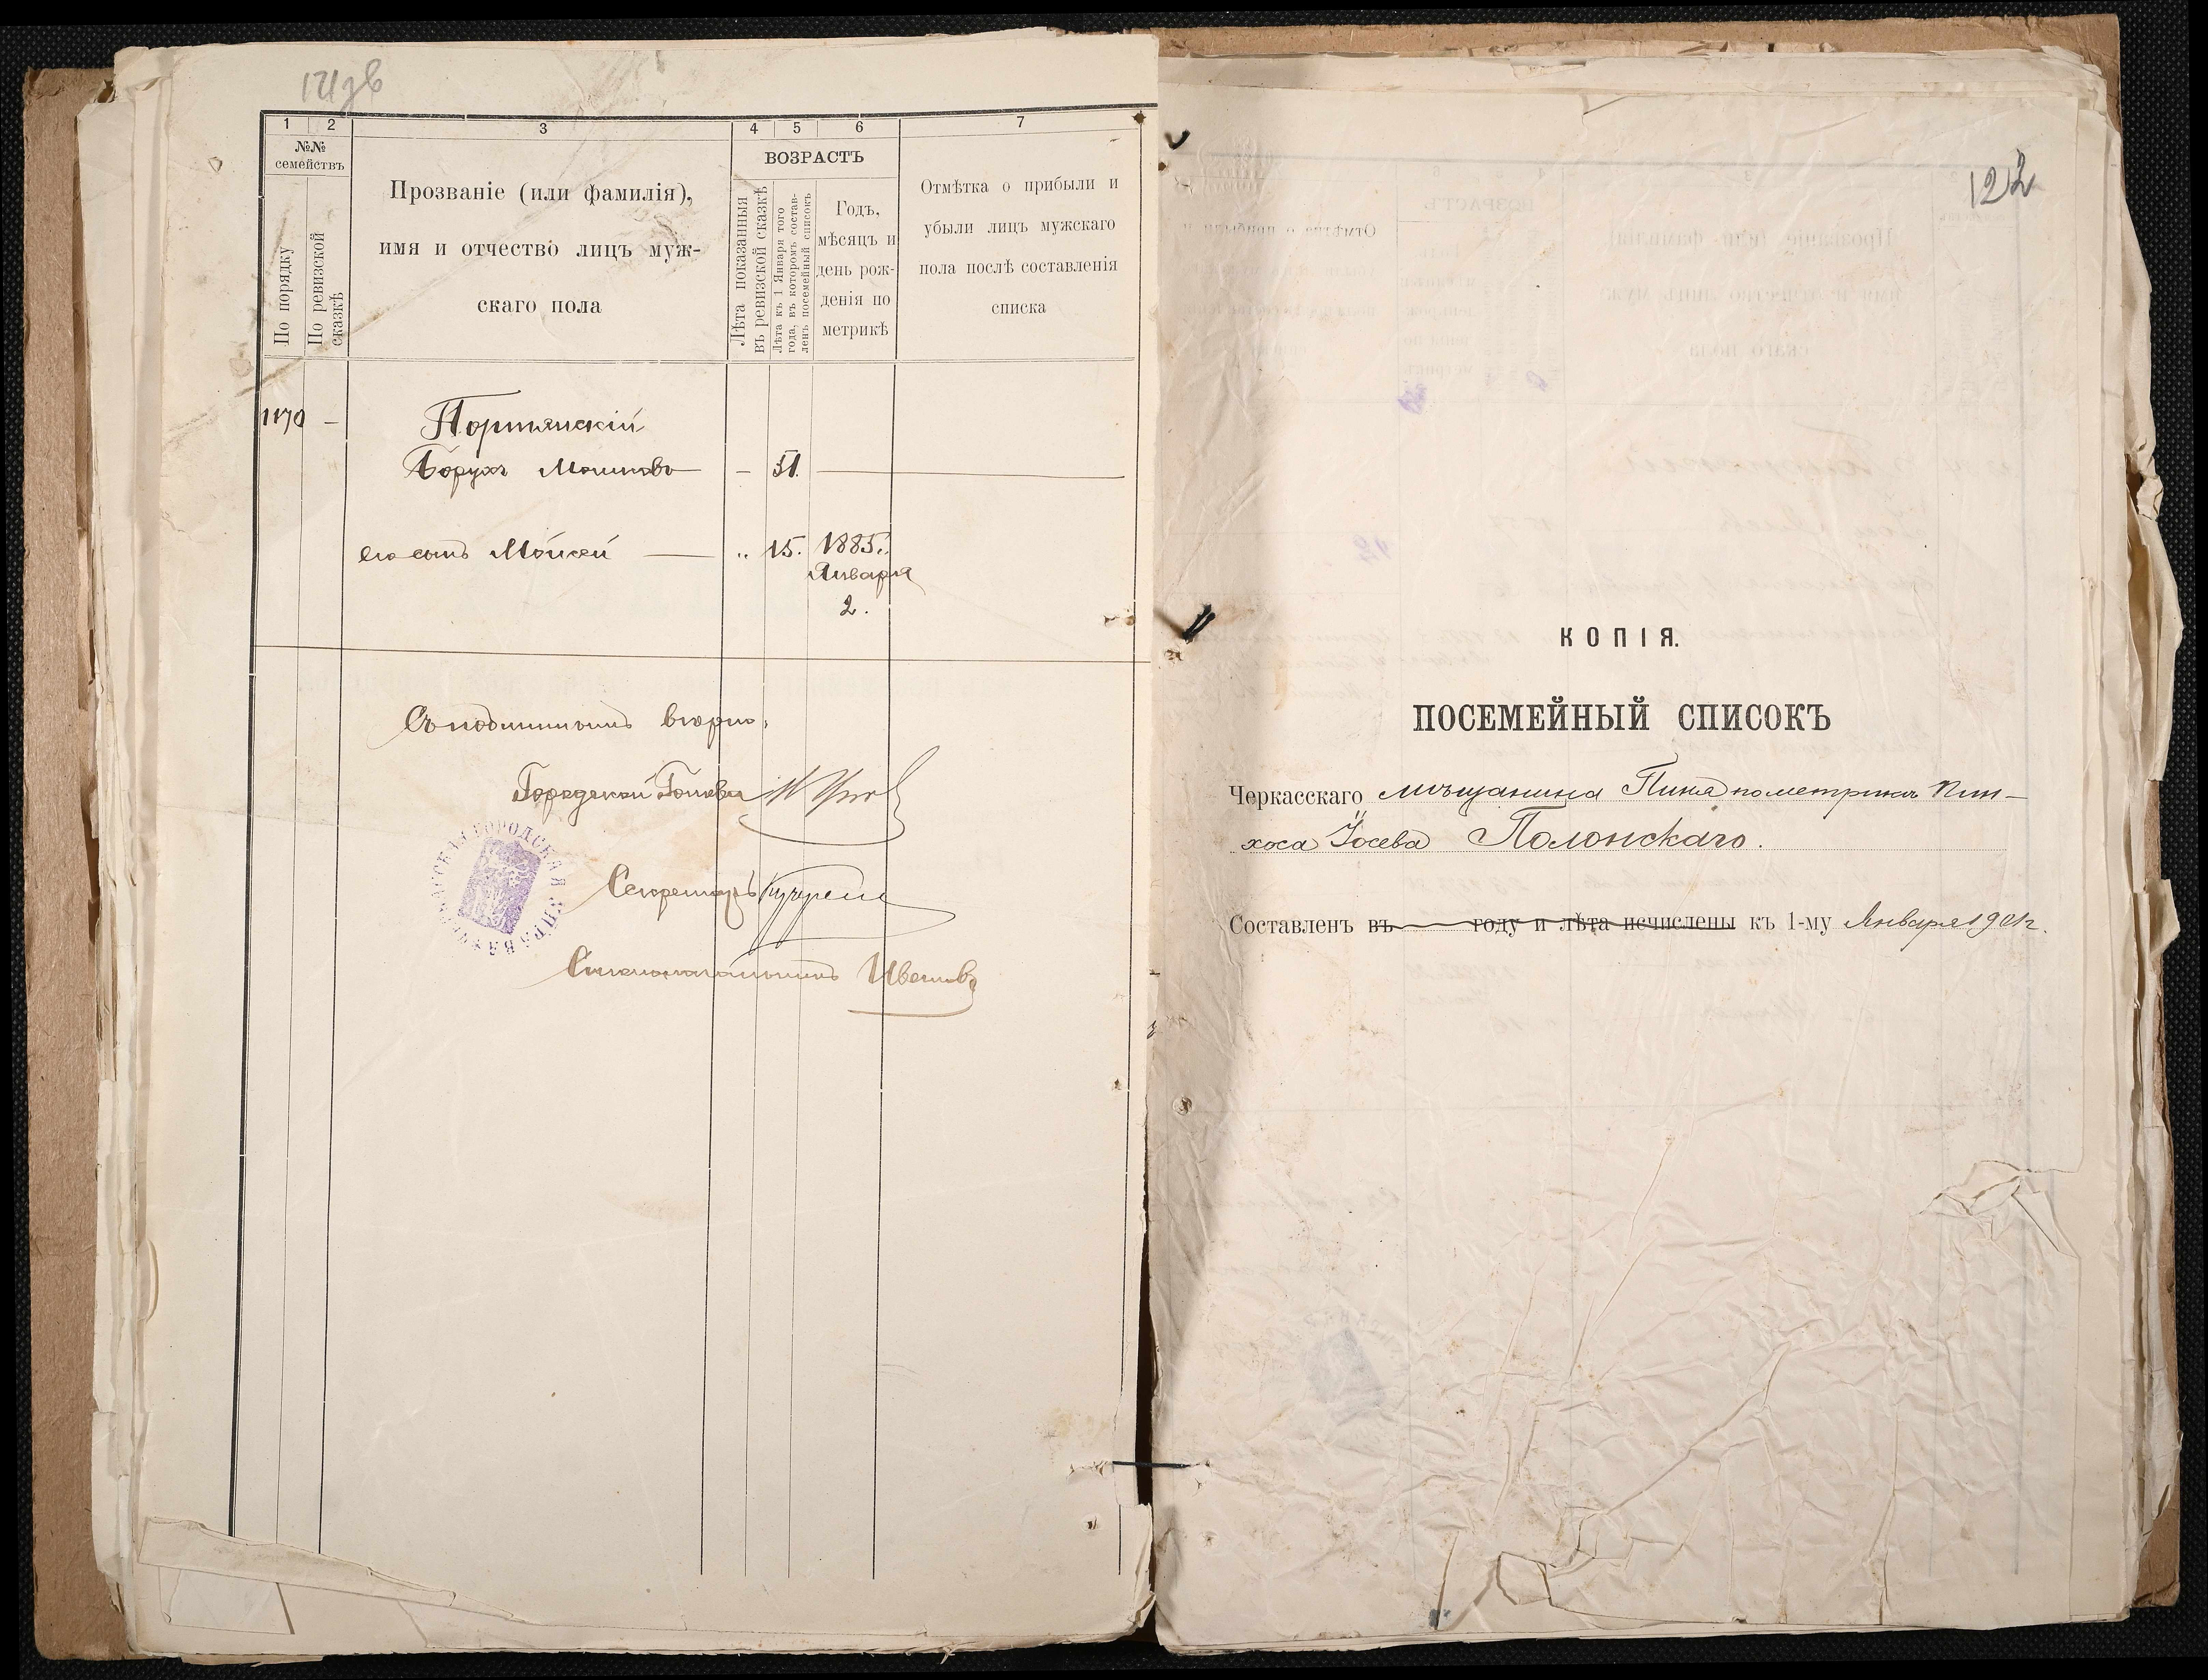 121дв
1 2 3 4 5 6 7
№№
семействъ
По порядку
По ревизской
сказкѣ
Прозваніе (или фамилія),
имя и отчество лицъ муж-
скаго пола
ВОЗРАСТЪ
Лѣта показанныя
въ ревизской сказкѣ
Лѣта къ 1 Января того
года, въ которомъ состав-
ленъ посемейный списокъ
Годъ,
мѣсяцъ и
день рож-
денія по
метрикѣ
Отмѣтка о прибыли и
убыли лицъ мужскаго
пола послѣ составленія
списка
1170 — Портянскій
Борухъ Мошковъ — 51.
его сынъ Мойсей — „ 15. 1885.
Января
2.
Съ подлиннымъ вѣрно.
Городской Голова
ЧЕРКАССКАЯ ГОРОДСКАЯ УПРАВА
Секретарь
122
КОПІЯ.
ПОСЕМЕЙНЫЙ СПИСОКЪ
Черкасскаго мѣщанина Пиня по метрикѣ Пин-
хоса Іосева Полонскаго.
Составленъ въ году и лѣта исчислены къ 1-му Января 1901 г.